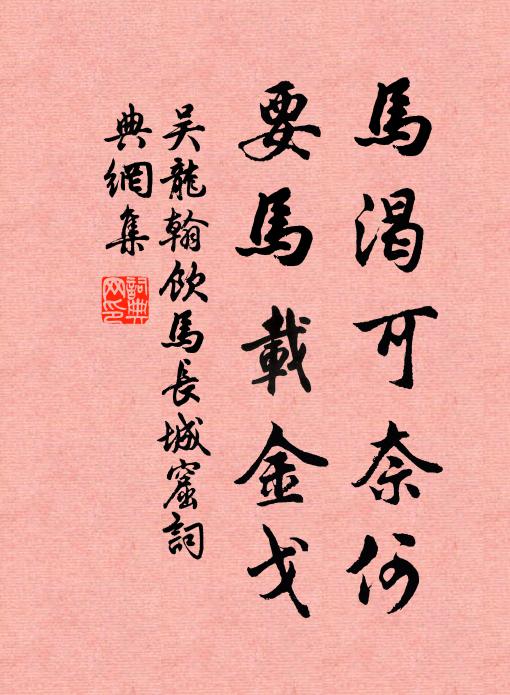 馬渴可奈何
要馬載金戈
吴龍翰飲馬長城窟詞
典網集
詞典
网印